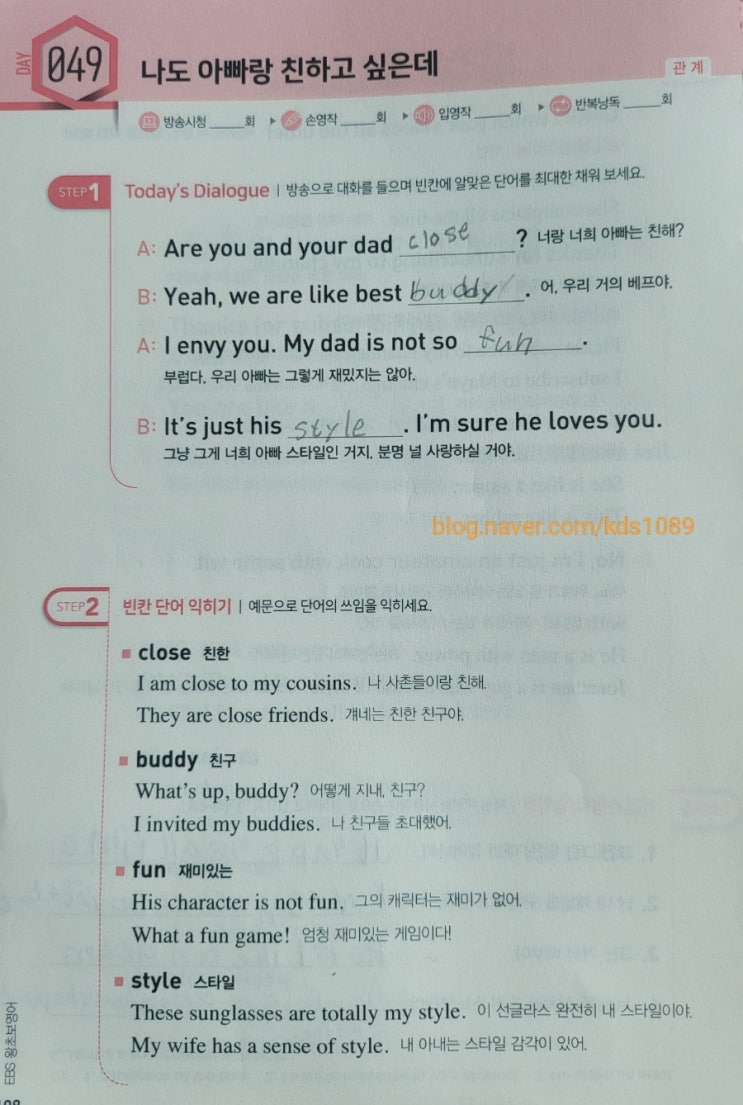 DAY 049 나도 아빠랑 친하고 싶은데
관계
방송시청 _____회 ▶ 손영작 _____회 ▶ 입영작 _____회 ▶ 반복낭독 _____회
STEP1 Today's Dialogue | 방송으로 대화를 들으며 빈칸에 알맞은 단어를 최대한 채워 보세요.
A: Are you and your dad close? 너랑 너희 아빠는 친해?
B: Yeah, we are like best buddy. 어, 우리 거의 베프야.
A: I envy you. My dad is not so fun.
부럽다. 우리 아빠는 그렇게 재밌지는 않아.
B: It's just his style. I'm sure he loves you.
그냥 그게 너희 아빠 스타일인 거지. 분명 널 사랑하실 거야.
blog.naver.com/kds1089
STEP2 빈칸 단어 익히기 | 예문으로 단어의 쓰임을 익히세요.
■ close 친한
I am close to my cousins. 나 사촌들이랑 친해.
They are close friends. 걔네는 친한 친구야.
■ buddy 친구
What's up, buddy? 어떻게 지내, 친구?
I invited my buddies. 나 친구들 초대했어.
■ fun 재미있는
His character is not fun. 그의 캐릭터는 재미가 없어.
What a fun game! 엄청 재미있는 게임이다!
■ style 스타일
These sunglasses are totally my style. 이 선글라스 완전히 내 스타일이야.
My wife has a sense of style. 내 아내는 스타일 감각이 있어.
EBS 왕초보영어